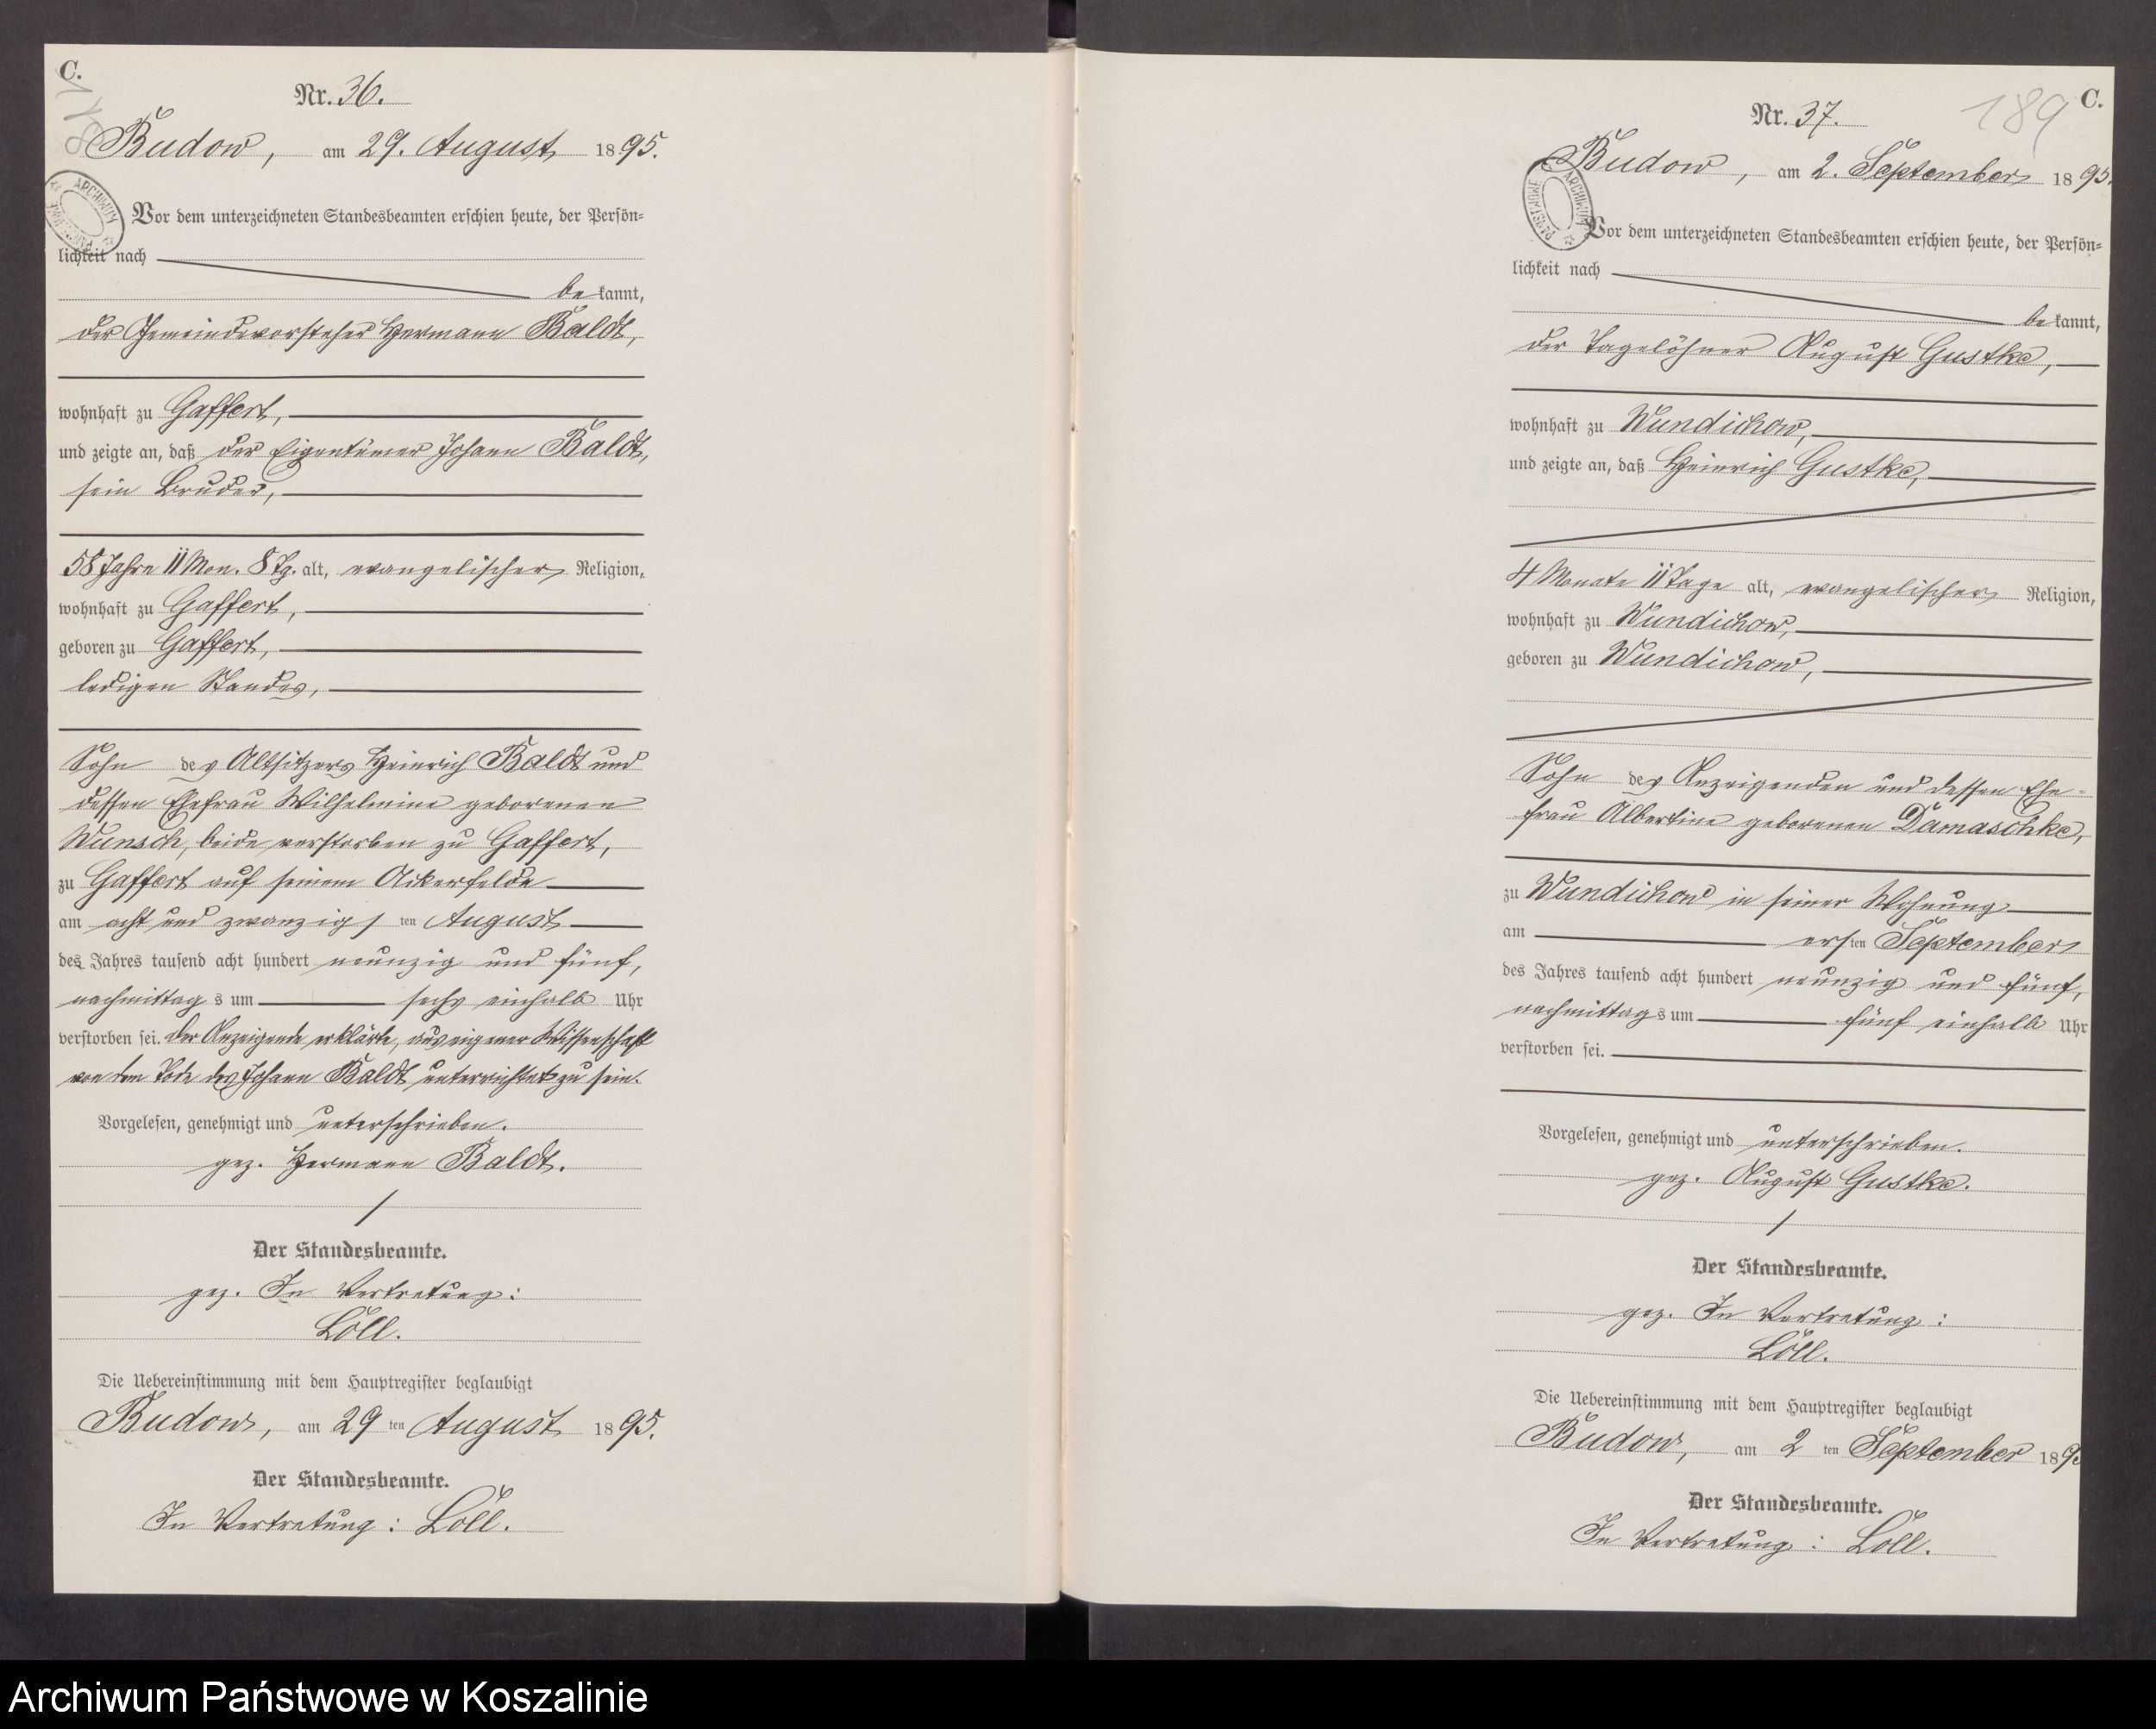 C.
Nr. 36.
Budow, am 29. August 1895.
Vor dem unterzeichneten Standesbeamten erschien heute, der Persön=
lichkeit nach
bekannt,
der Gemeindevorsteher Hermann Baldt,
wohnhaft zu Gaffert,
und zeigte an, daß der Eigentümer Johann Baldt,
sein Bruder,
58 Jahre 11 Mon. 8 Tg. alt, evangelischer Religion,
wohnhaft zu Gaffert,
geboren zu Gaffert,
ledigen Standes,
Sohn des Altsitzers Heinrich Baldt und
dessen Ehefrau Wilhelmine geborenen
Wunsch, beide verstorben zu Gaffert,
zu Gaffert auf seinem Ackerfelde
am acht und zwanzigsten August
des Jahres tausend acht hundert neunzig und fünf,
nachmittags um sechs einhalb Uhr
verstorben sei. Der Anzeigende erklärte, aus eigener Wissenschaft
von dem Tode des Johann Baldt unterrichtet zu sein.
Vorgelesen, genehmigt und unterschrieben.
gez. Hermann Baldt.
Der Standesbeamte.
gez. In Vertretung:
Löll.
Die Uebereinstimmung mit dem Hauptregister beglaubigt
Budow, am 29 ten August 1895.
Der Standesbeamte.
In Vertretung: Löll.
189 C.
Nr. 37.
Budow, am 2. September 1895.
ARCHIWUM PAŃSTWOWE
Vor dem unterzeichneten Standesbeamten erschien heute, der Persön=
lichkeit nach
bekannt,
der Tagelöhner August Gustke,
wohnhaft zu Wundichow,
und zeigte an, daß Heinrich Gustke,
4 Monate 11 Tage alt, evangelischer Religion,
wohnhaft zu Wundichow,
geboren zu Wundichow,
Sohn des Anzeigenden und dessen Ehe-
frau Albertine geborenen Damaschke,
zu Wundichow in seiner Wohnung
am ersten September
des Jahres tausend acht hundert neunzig und fünf,
nachmittags um fünf einhalb Uhr
verstorben sei.
Vorgelesen, genehmigt und unterschrieben.
gez. August Gustke.
Der Standesbeamte.
gez. In Vertretung:
Löll.
Die Uebereinstimmung mit dem Hauptregister beglaubigt
Budow, am 2 ten September 189
Der Standesbeamte.
In Vertretung: Löll.
Archiwum Państwowe w Koszalinie